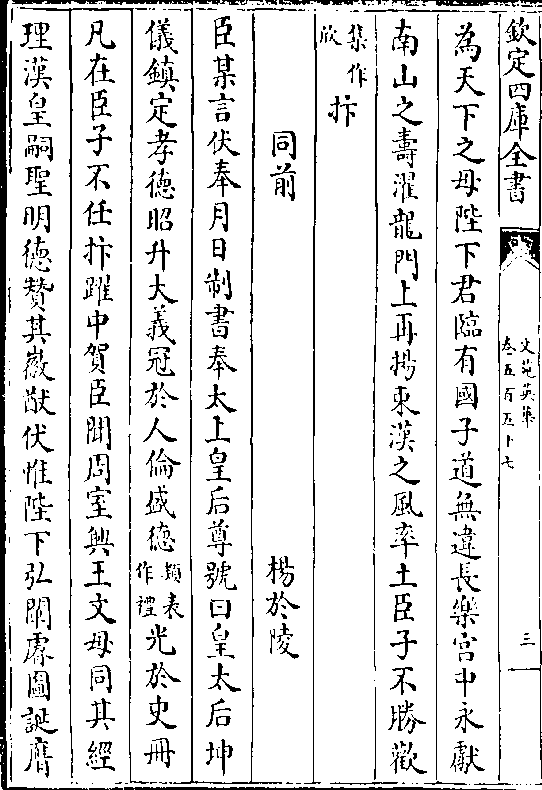 欽定四庫全書
文苑英華
卷五百五十七
三
為天下之母陛下君臨有國子道無違長樂宮中永獻
南山之壽濯龍門上再揚東漢之風率土臣子不勝歡
集作
欣
抃
同前
楊於陵
臣某言伏奉月日制書奉太上皇后尊號曰皇太后坤
儀鎮定孝德昭升大義冠於人倫盛德類表作禮光於史冊
凡在臣子不任抃躍中賀臣聞周室興王文母同其經
理漢皇嗣聖明德贊其徽猷伏惟陛下弘闡睿圖誕膺